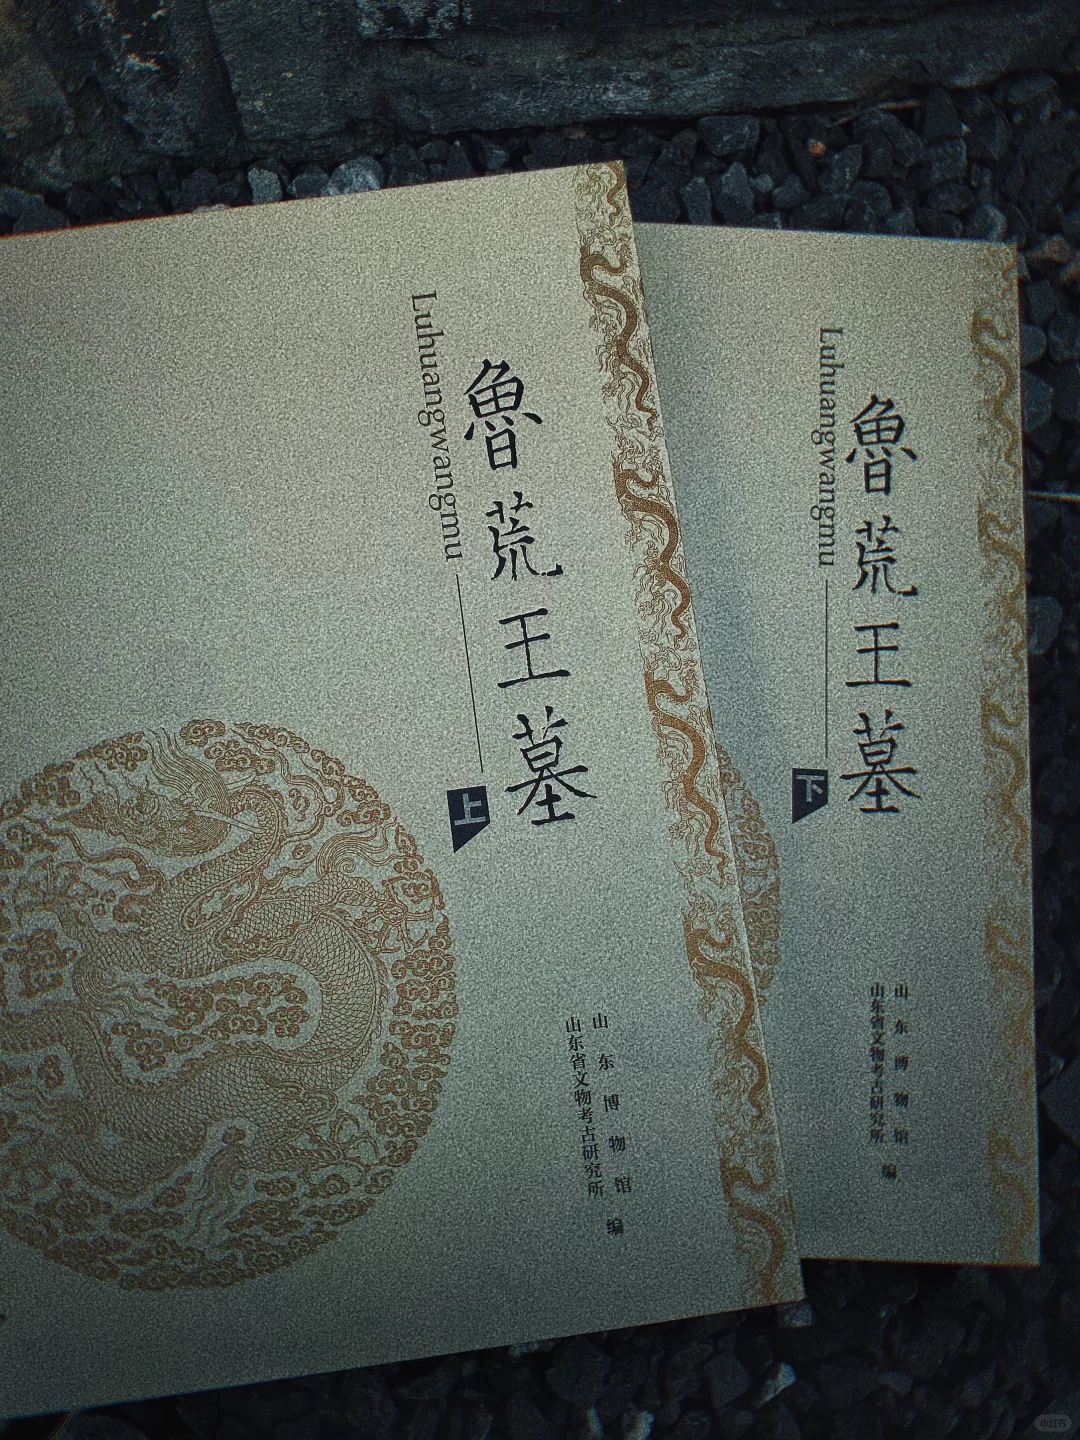 Luhuangwangmu
魯荒王墓
上
山东博物馆
山东省文物考古研究所
编
Luhuangwangmu
魯荒王墓
下
山东博物馆
山东省文物考古研究所
编
小红书